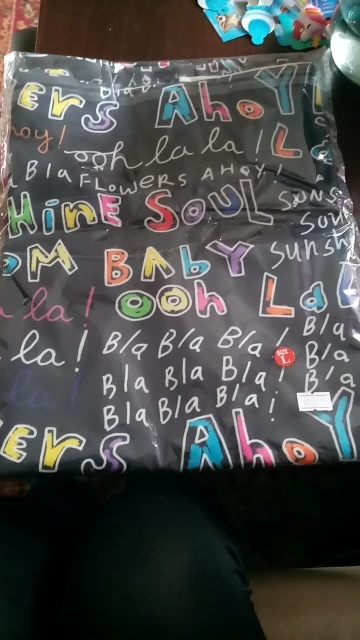 Bla Bla
ers Ahoy
hoy! ooh la la! La
Bla FLOWERS AHOY
Hine Soul Suns
Sou
OM BABY sunsh
la! ooh La
la! Bla Bla Bla! Bla
SIZE L
Bla
la! Bla Bla Bla! Bla
Bla Bla Bla!
ers Ahoy